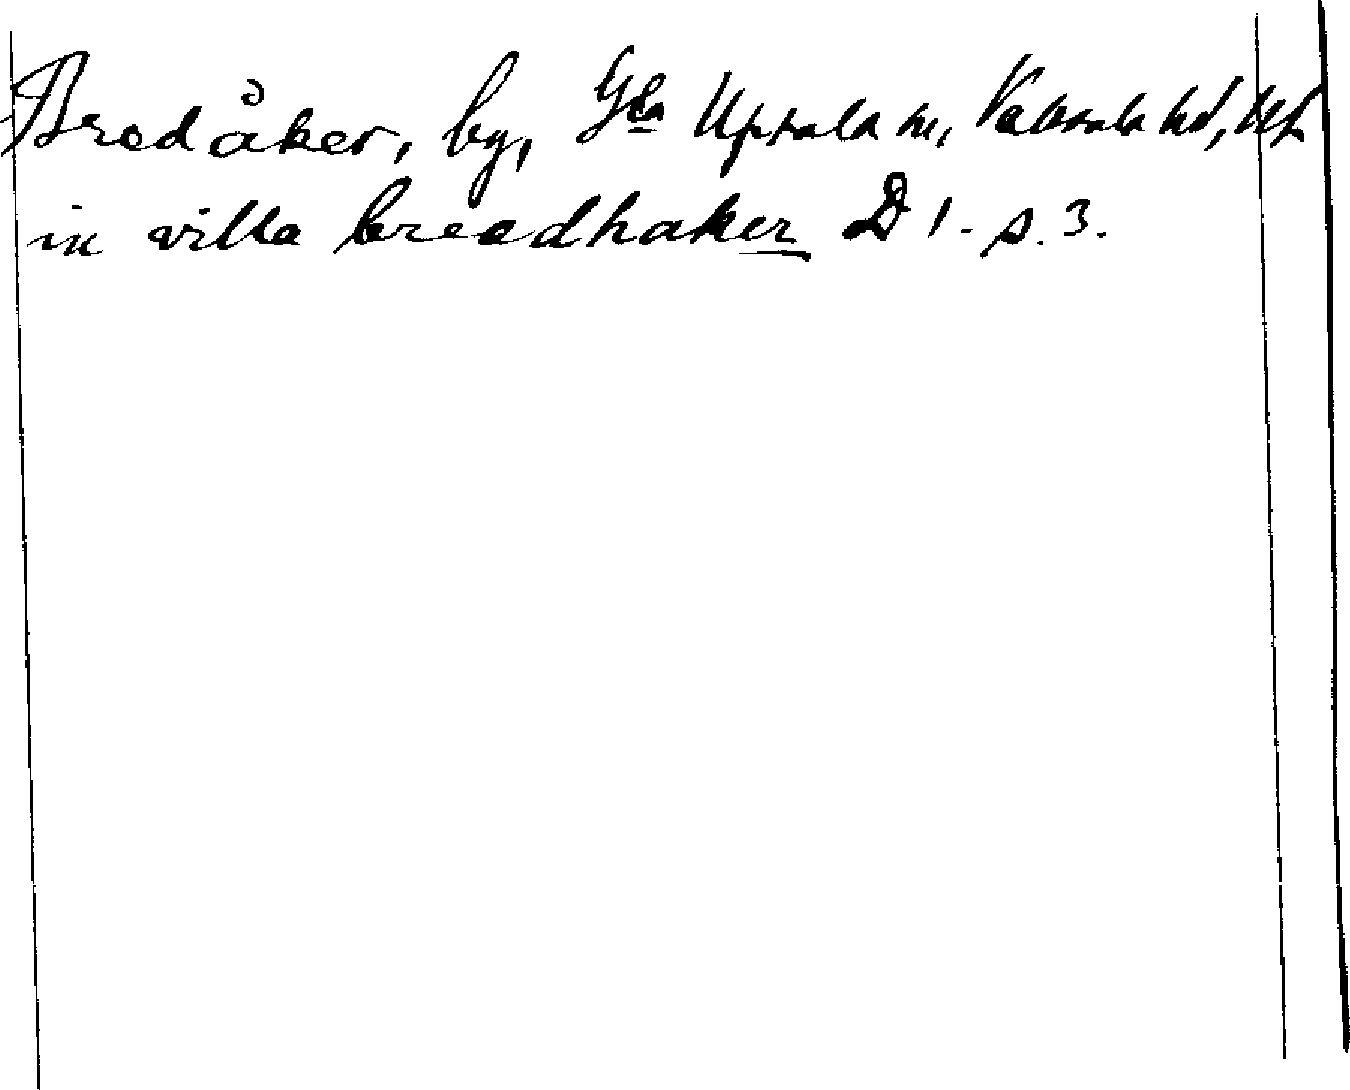 Bredåker, by, Gla Upsala sn, Vaksala hd, Upl
in villa breedhaker D 1. s. 3.